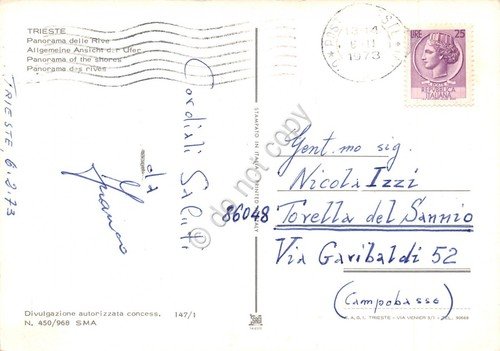 TRIESTE
Panorama delle Rive
Allgemeine Ansicht der Ufer
Panorama of the shores
Panorama des rives
TRIESTE, 6.2.73
Cordiali Saluti
da
STAMPATO IN ITALIA
1973
LIRE 25
REPUBBLICA
ITALIANA
Gent.mo sig.
Nicola Izzi
86048 Torella del Sannio
Via Garibaldi 52
(Campobasso)
Divulgazione autorizzata concess. 147/1
N. 450/968 SMA
TRIESTE - VIA
do not copy